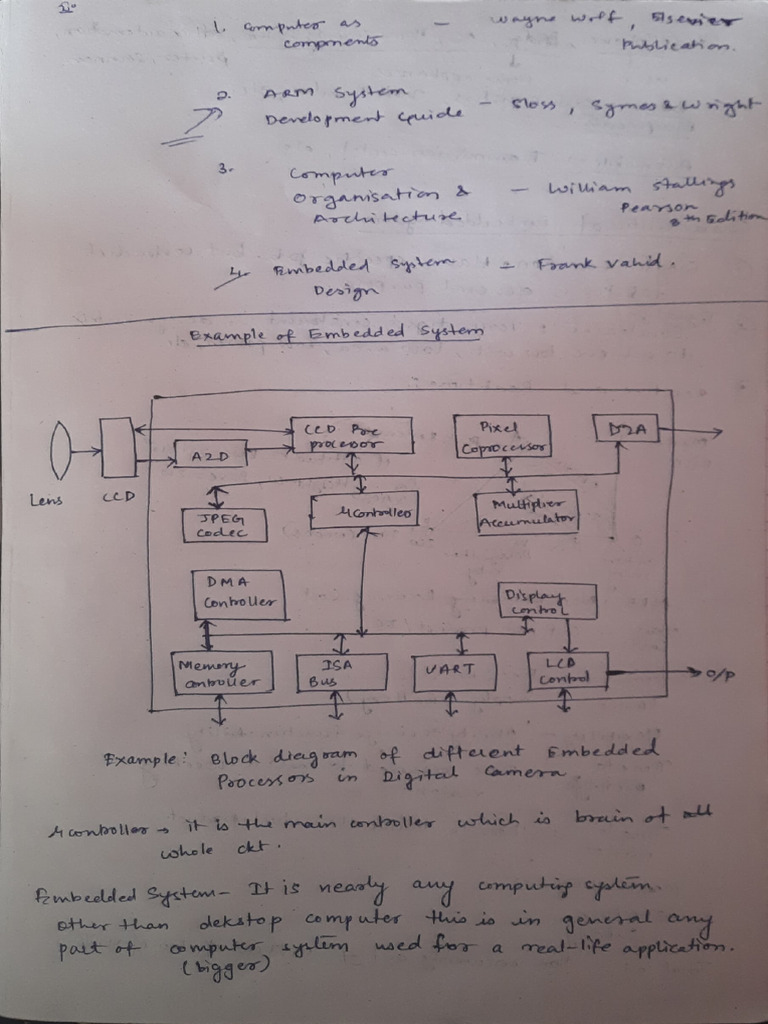 1. Computer as — Wayne Wolf, Elsevier
components Publication.
2. ARM System
Development Guide — Sloss, Symes & Wright
3. Computer
Organisation & — William Stallings
Architecture Pearson
8th Edition
4. Embedded System — Frank Vahid.
Design
Example of Embedded System
CCD Pre
processor
Pixel
Coprocessor
D2A
A2D
Lens
CCD
JPEG
codec
μController
Multiplier
Accumulator
DMA
Controller
Display
control
Memory
Controller
ISA
Bus
UART
LCD
Control
O/P
Example: Block diagram of different Embedded
Processors in Digital Camera.
μcontroller → it is the main controller which is brain of
whole ckt.
Embedded System – It is nearly any computing system
other than dekstop computer this is in general any
part of computer system used for a real-life application.
(bigger)